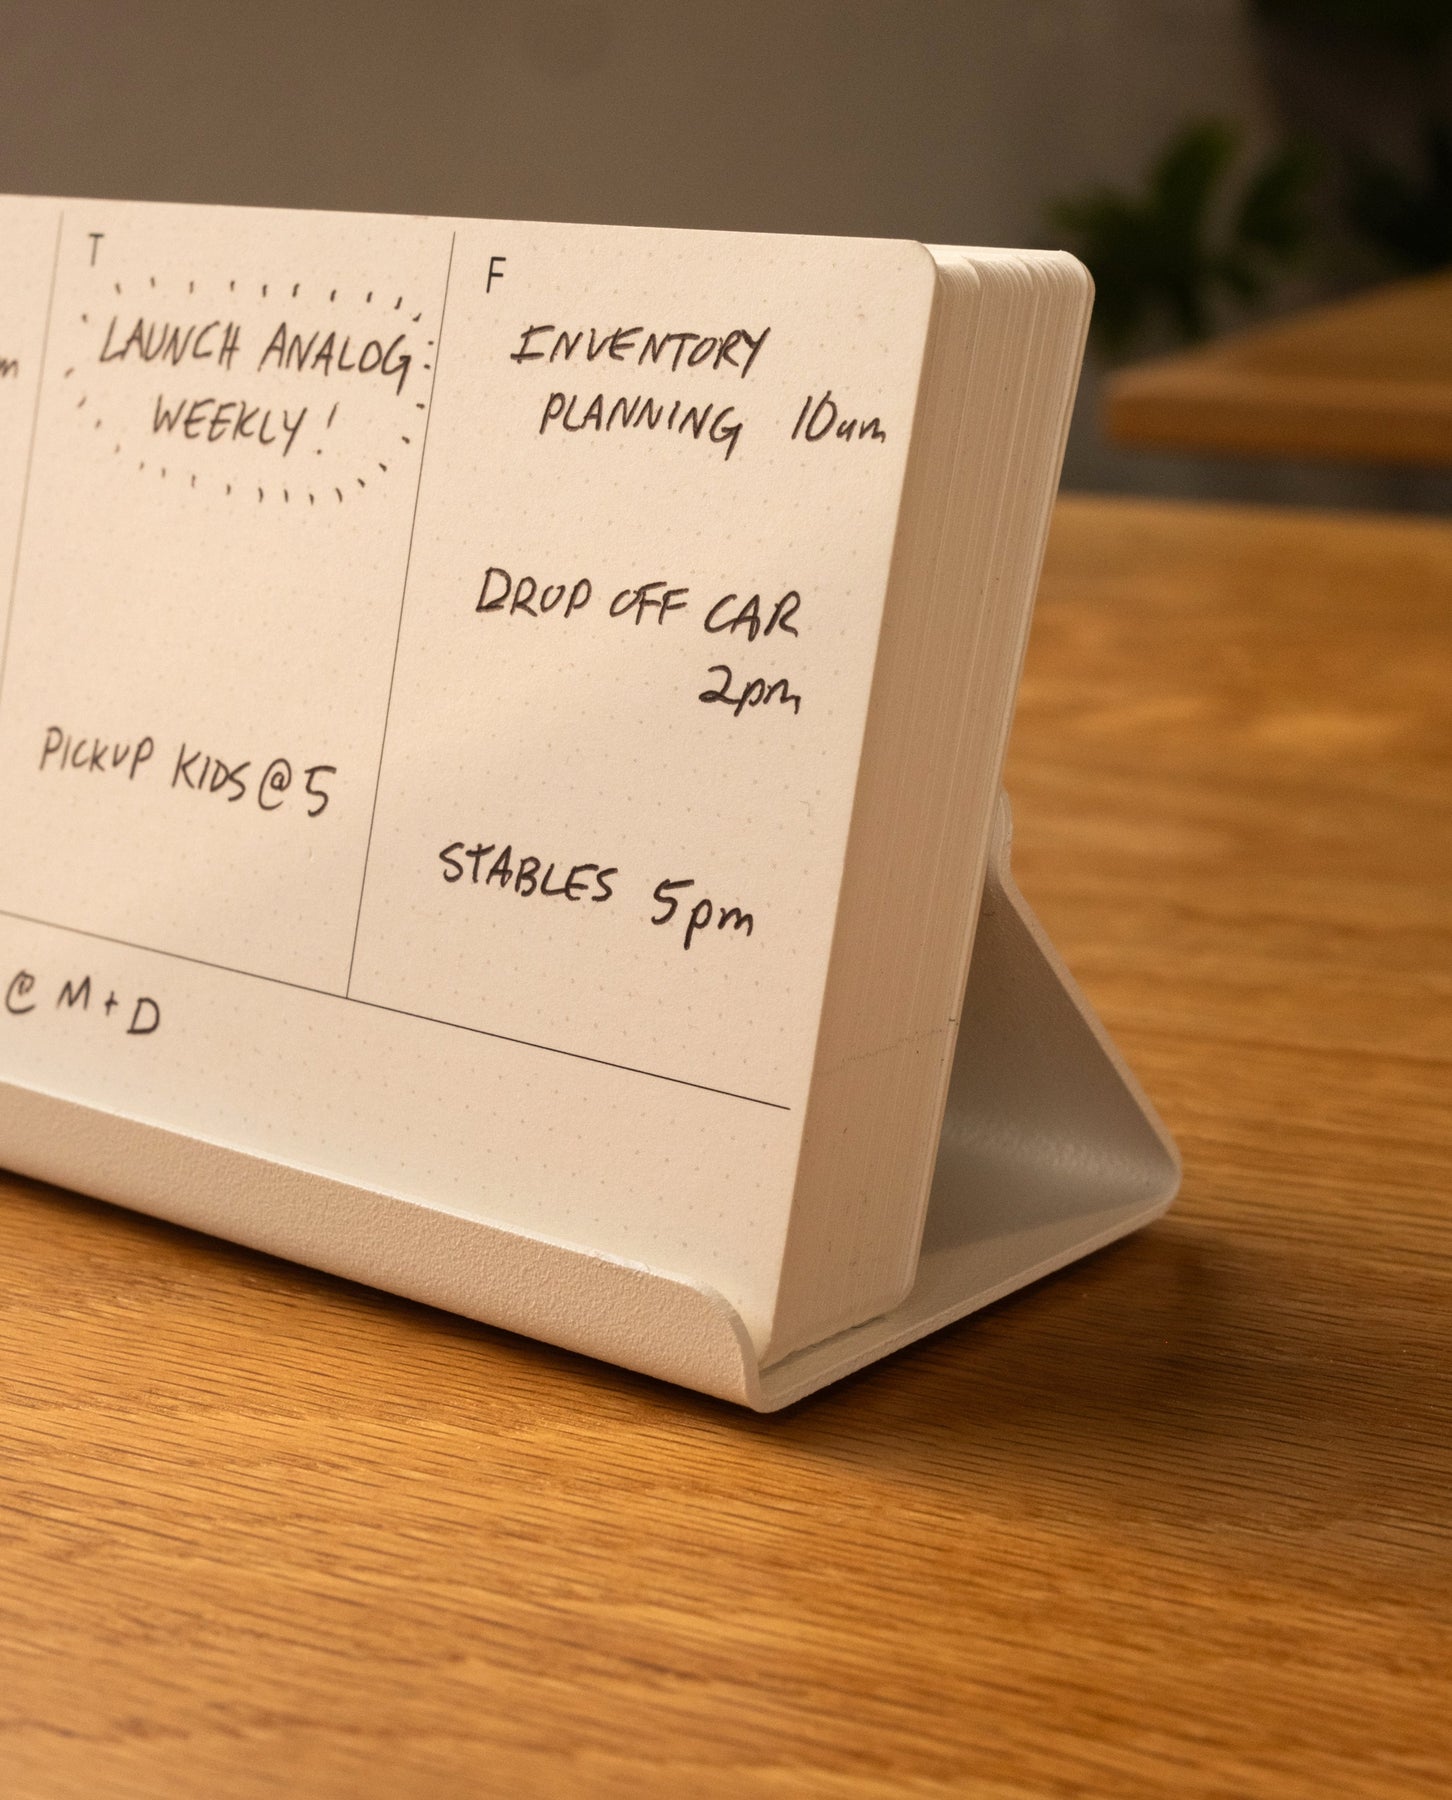 T
LAUNCH ANALOG
WEEKLY!
PICKUP KIDS @ 5
F
INVENTORY
PLANNING 10am
DROP OFF CAR
2pm
STABLES 5pm
@ M + D